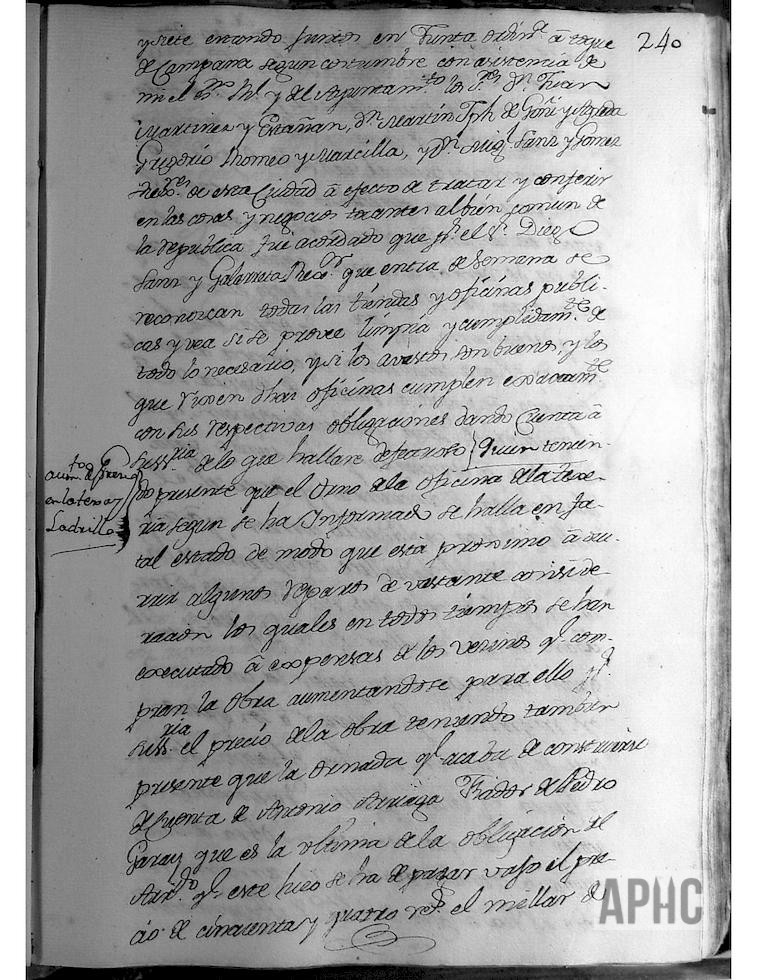 240
y siete estando Juntos en Junta ordin.ª à toque
de Campana segun costumbre con asistencia de
mi el Ess.no R.l y del Ayuntam.to los S.res D.n Juan
Martinez y Estañan, D.n Martin Jph de Goñi y
Gregorio Romeo y Marcilla, y D.n Mig.l Sanz y Gomez
Rexo.res de esta Ciudad à efecto de tratar y conferir
en las cosas y negocios tocantes al bien comun de
la Republica fue acordado que p.r el S.r Diego
Sanz y Galarreta Rexo.r que entra de semana se
reconozcan todas las tiendas y oficinas publi-
cas y vea si se provee limpia y cumplidam.te de
todo lo necesario, y si los avastos son buenos, y los
que viven d̃has oficinas cumplen exactam.te
con sus respectivas obligaciones dando Cuenta à
Suss.ria de lo que hallare defectuoso / Y quien tenien-
aum.to de Precio
en la texa y
Ladrillo
do presente que el orno de la oficina de la texe-
ria segun se ha Informado se halla en fa-
tal estado de modo que està proximo à ocu-
rrir algunos reparos de vastante conside-
racion los quales en todos tiempos se han
executado à expensas de los vecinos q.e com-
pran la obra aumentandose para ello p.r
Suss.ria el precio de la obra teniendo tambien
presente que la ornada q.e acaba de construirse
de Cuenta de Antonio Arriaga Fiador de Pedro
Garay que es la ultima de la obligacion del
Arri.do q.e este hizo se ha de pagar vajo el pre-
cio de cinquenta y quatro r.s el millar de
APHC